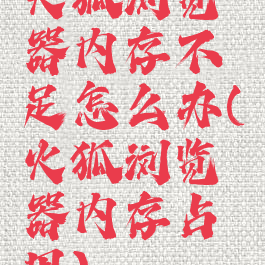 火狐浏览
器内存不
足怎么办(
火狐浏览
器内存占
用)